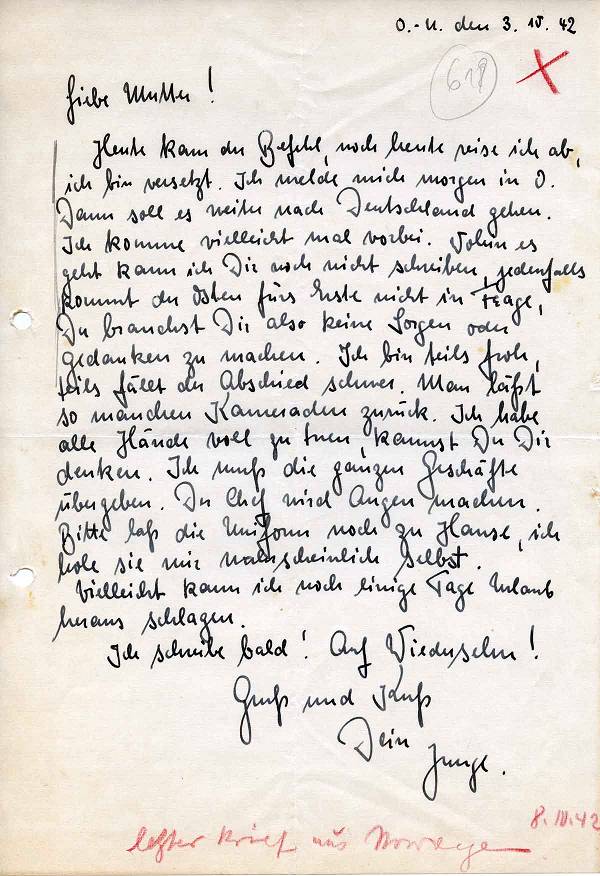 O.-U. den 3. IV. 42
618
Liebe Mutter!
Heute kam der Befehl, noch heute reise ich ab,
ich bin versetzt. Ich melde mich morgen in O.
Dann soll es weiter nach Deutschland gehen.
Ich komme vielleicht mal vorbei. Wohin es
geht kann ich Dir noch nicht schreiben, jedenfalls
kommt der Osten fürs Erste nicht in Frage,
Du brauchst Dir also keine Sorgen oder
gedanken zu machen. Ich bin teils froh,
teils fällt der Abschied schwer. Man läßt
so manchen Kameraden zurück. Ich habe
alle Hände voll zu tuen, kannst Du Dir
denken. Ich muß die ganzen Geschäfte
übergeben. Der Chef wird Augen machen.
Bitte laß die Uniform noch zu Hause, ich
hole sie mir wahrscheinlich selbst.
Vielleicht kann ich noch einige Tage Urlaub
heraus schlagen.
Ich schreibe bald! Auf Wiedersehn!
Gruß und Kuß
Dein
Junge.
8. IV. 42
letzter Brief aus Norwege